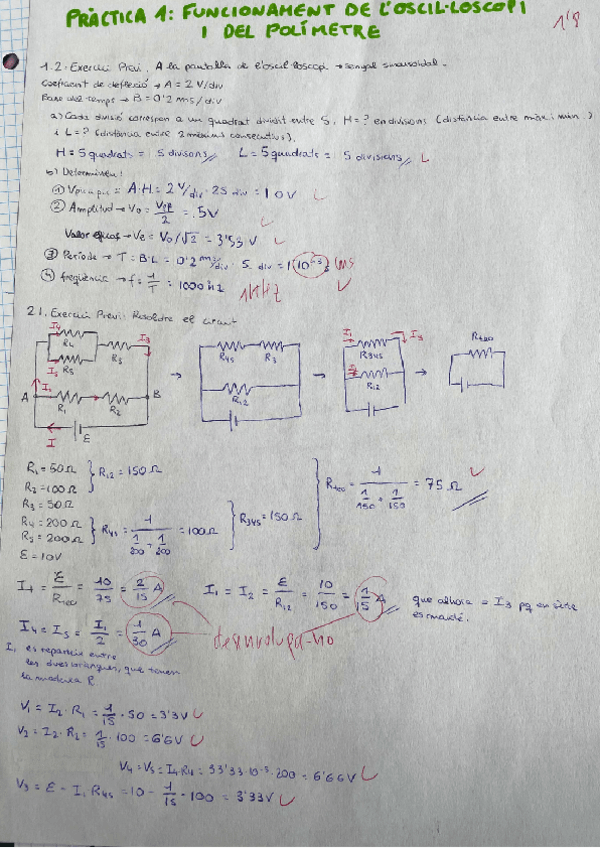 PRÀCTICA 1: FUNCIONAMENT DE L'OSCIL·LOSCOPI
I DEL POLÍMETRE
1'8
1.2. Exercici Previ. A la pantalla de l'oscil·loscopi → senyal sinusoidal.
Coeficient de deflexió → A = 2 V/div
Base de temps → B = 0'2 ms/div
a) Cada divisió correspon a un quadrat dividit entre 5. H = ? en divisions (distància entre màx i min.)
i L = ? (distància entre 2 màxims consecutius).
H = 5 quadrats = 5 divisions L = 5 quadrats = 5 divisions
b) Determineu:
① V pic a pic = A·H = 2 V/div · 25 div = 10V
② Amplitud → V₀ = Vpp/2 = 5V
Valor eficaç → Ve = V₀/√2 = 3'53 V
③ Període → T = B·L = 0'2 ms/div · 5 div = 1(10⁻³)s ms
④ freqüència → f = 1/T = 1000 hz 1KHz
2.1. Exercici Previ: Resoldre el circuit
I₄ R₄ I₃ R₃
I₅ R₅
A I₁ R₁ R₂ B
I ε
→ R₄₅ R₃ R₁₂
→ I₁ I₃ R₃₄₅ R₁₂
→ Rteo
R₁ = 50Ω
R₂ = 100Ω
R₁₂ = 150Ω
R₃ = 50Ω
R₄ = 200Ω
R₅ = 200Ω
R₄₅ = 1/(1/200 + 1/200) = 100Ω
R₃₄₅ = 150Ω
Rteo = 1/(1/150 + 1/150) = 75Ω
ε = 10V
I₁ = ε/Rteo = 10/75 = 2/15 A I₁ = I₂ = ε/R₁₂ = 10/150 = 1/15 A que alhora = I₃ pq en sèrie
és manté.
I₄ = I₅ = I₁/2 = 1/30 A desenvolupa-ho
I, es reparteix entre
les dues branques, que tenen
la mateixa R.
V₁ = I₂·R₁ = 1/15 · 50 = 3'3V
V₂ = I₂·R₂ = 1/15 · 100 = 6'6V
V₄ = V₅ = I₄·R₄ = 33'33·10⁻³·200 = 6'66V
V₃ = ε - I, R₄₅ = 10 - 1/15 · 100 = 3'33V